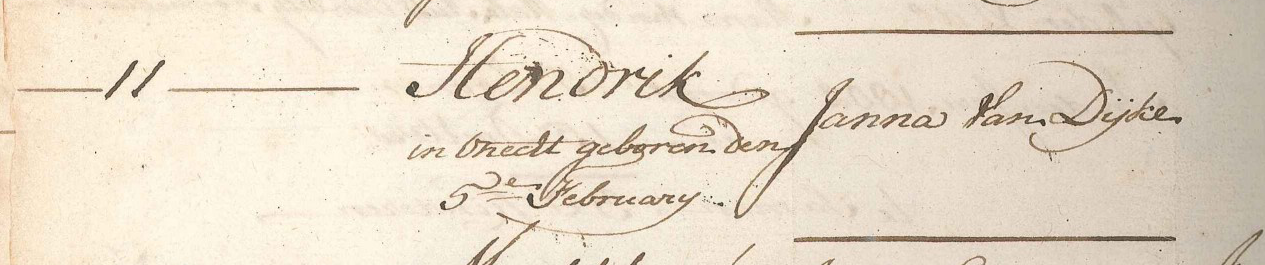 11 Hendrik
Janna Van Dijke
in Onecht geboren den
5de February